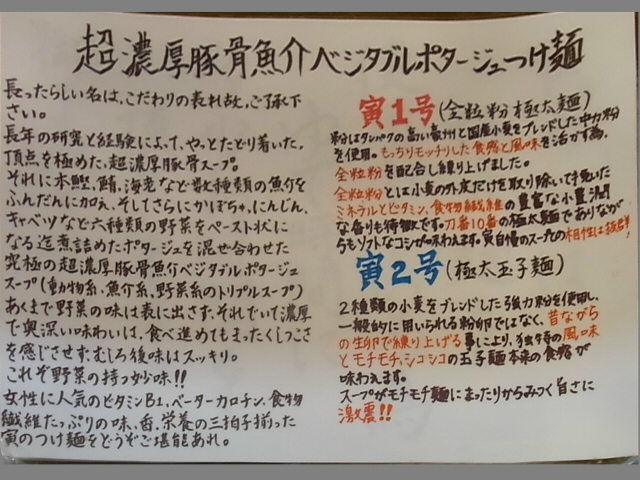 超濃厚豚骨魚介ベジタブルポタージュつけ麺
長ったらしい名は、こだわりの表れ故、ご了承下
さい。
長年の研究と経験によって、やっとたどり着いた、
頂点を極めた、超濃厚豚骨スープ。
それに本鰹、鯖、海老など数種類の魚介を
ふんだんに加え、そしてさらにかぼちゃ、にんじん、
キャベツなど六種類の野菜をペースト状に
なる迄煮詰めたポタージュを混ぜ合わせた
究極の超濃厚豚骨魚介ベジタブルポタージュ
スープ(動物系、魚介系、野菜系のトリプルスープ)
あくまで野菜の味は表に出さず、それでいて濃厚
で奥深い味わいは、食べ進めてもまったくしつこさ
を感じさせず、むしろ後味はスッキリ。
これぞ野菜の持つ妙味!!
女性に人気のビタミンB1、ベーターカロチン、食物
繊維たっぷりの味、香、栄養の三拍子揃った
寅のつけ麺をどうぞご堪能あれ。
寅1号(全粒粉極太麺)
粉はタンパクの高い豪州と国産小麦をブレンドした中力粉
を使用。もっちりモッチリした食感と風味を活かす為、
全粒粉を配合し練り上げました。
全粒粉とは小麦の外皮だけを取り除いて挽いた
ミネラルとビタミン、食物繊維の豊富な小麦潤
な香りも特徴です。刀番10番の極太麺でありなが
らもソフトなコシが味わえます。寅自慢のスープとの相性は抜群!
寅2号(極太玉子麺)
2種類の小麦をブレンドした強力粉を使用し、
一般的に用いられる粉卵ではなく、昔ながら
の生卵で練り上げる事により、独特の風味
とモチモチ、シコシコの玉子麺本来の食感が
味わえます。
スープがモチモチ麺にまったりからみつく旨さに
激震!!